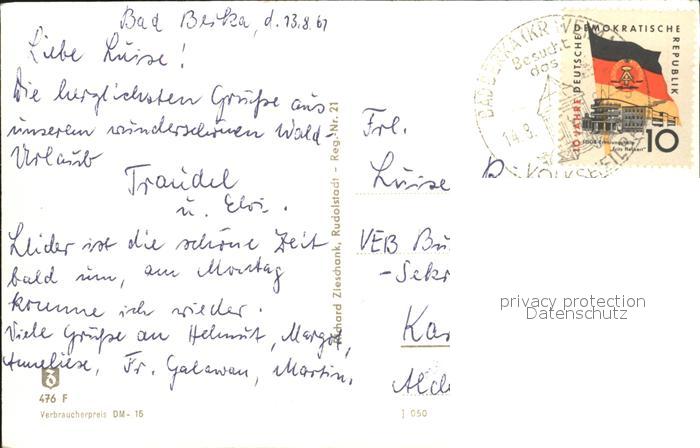 Bad Berka, d. 13.8.61
Liebe Luise!
Die herzlichsten Grüße aus
unserem wunderschönen Wald-
Urlaub
Traudel
u. Elvi.
Leider ist die schöne Zeit
bald um, am Montag
komme ich wieder.
Viele Grüße an Helmut, Margot,
Anneliese, Fr. Galawan, Martin.
476 F
Verbraucherpreis DM -,15
Richard Zieschank, Rudolstadt - Reg.-Nr. 21
J 050
Frl.
Luise
VEB Bu
-Sekr
Ka
Alde
BAD BERKA (KR WEIMAR)
Besucht
das
14.8.
10 JAHRE DEUTSCHE DEMOKRATISCHE REPUBLIK
FDGB-Erholungsheim
"Fritz Heckert"
10
privacy protection
Datenschutz